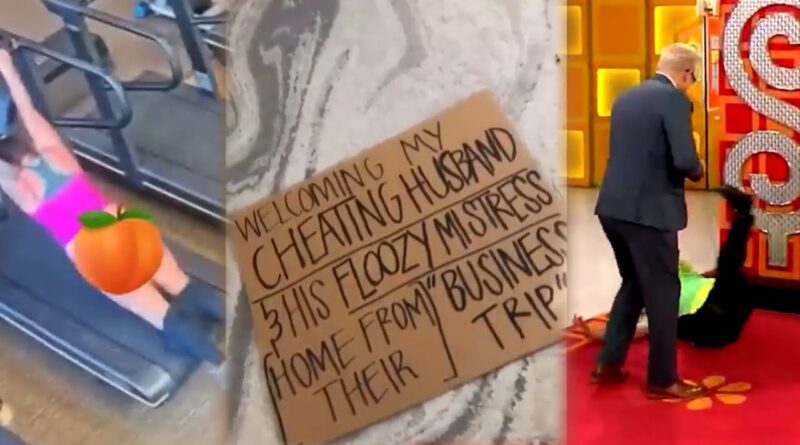 WELCOMING MY
CHEATING HUSBAND
& HIS FLOOZY MISTRESS
[HOME FROM] "BUSINESS
THEIR TRIP"